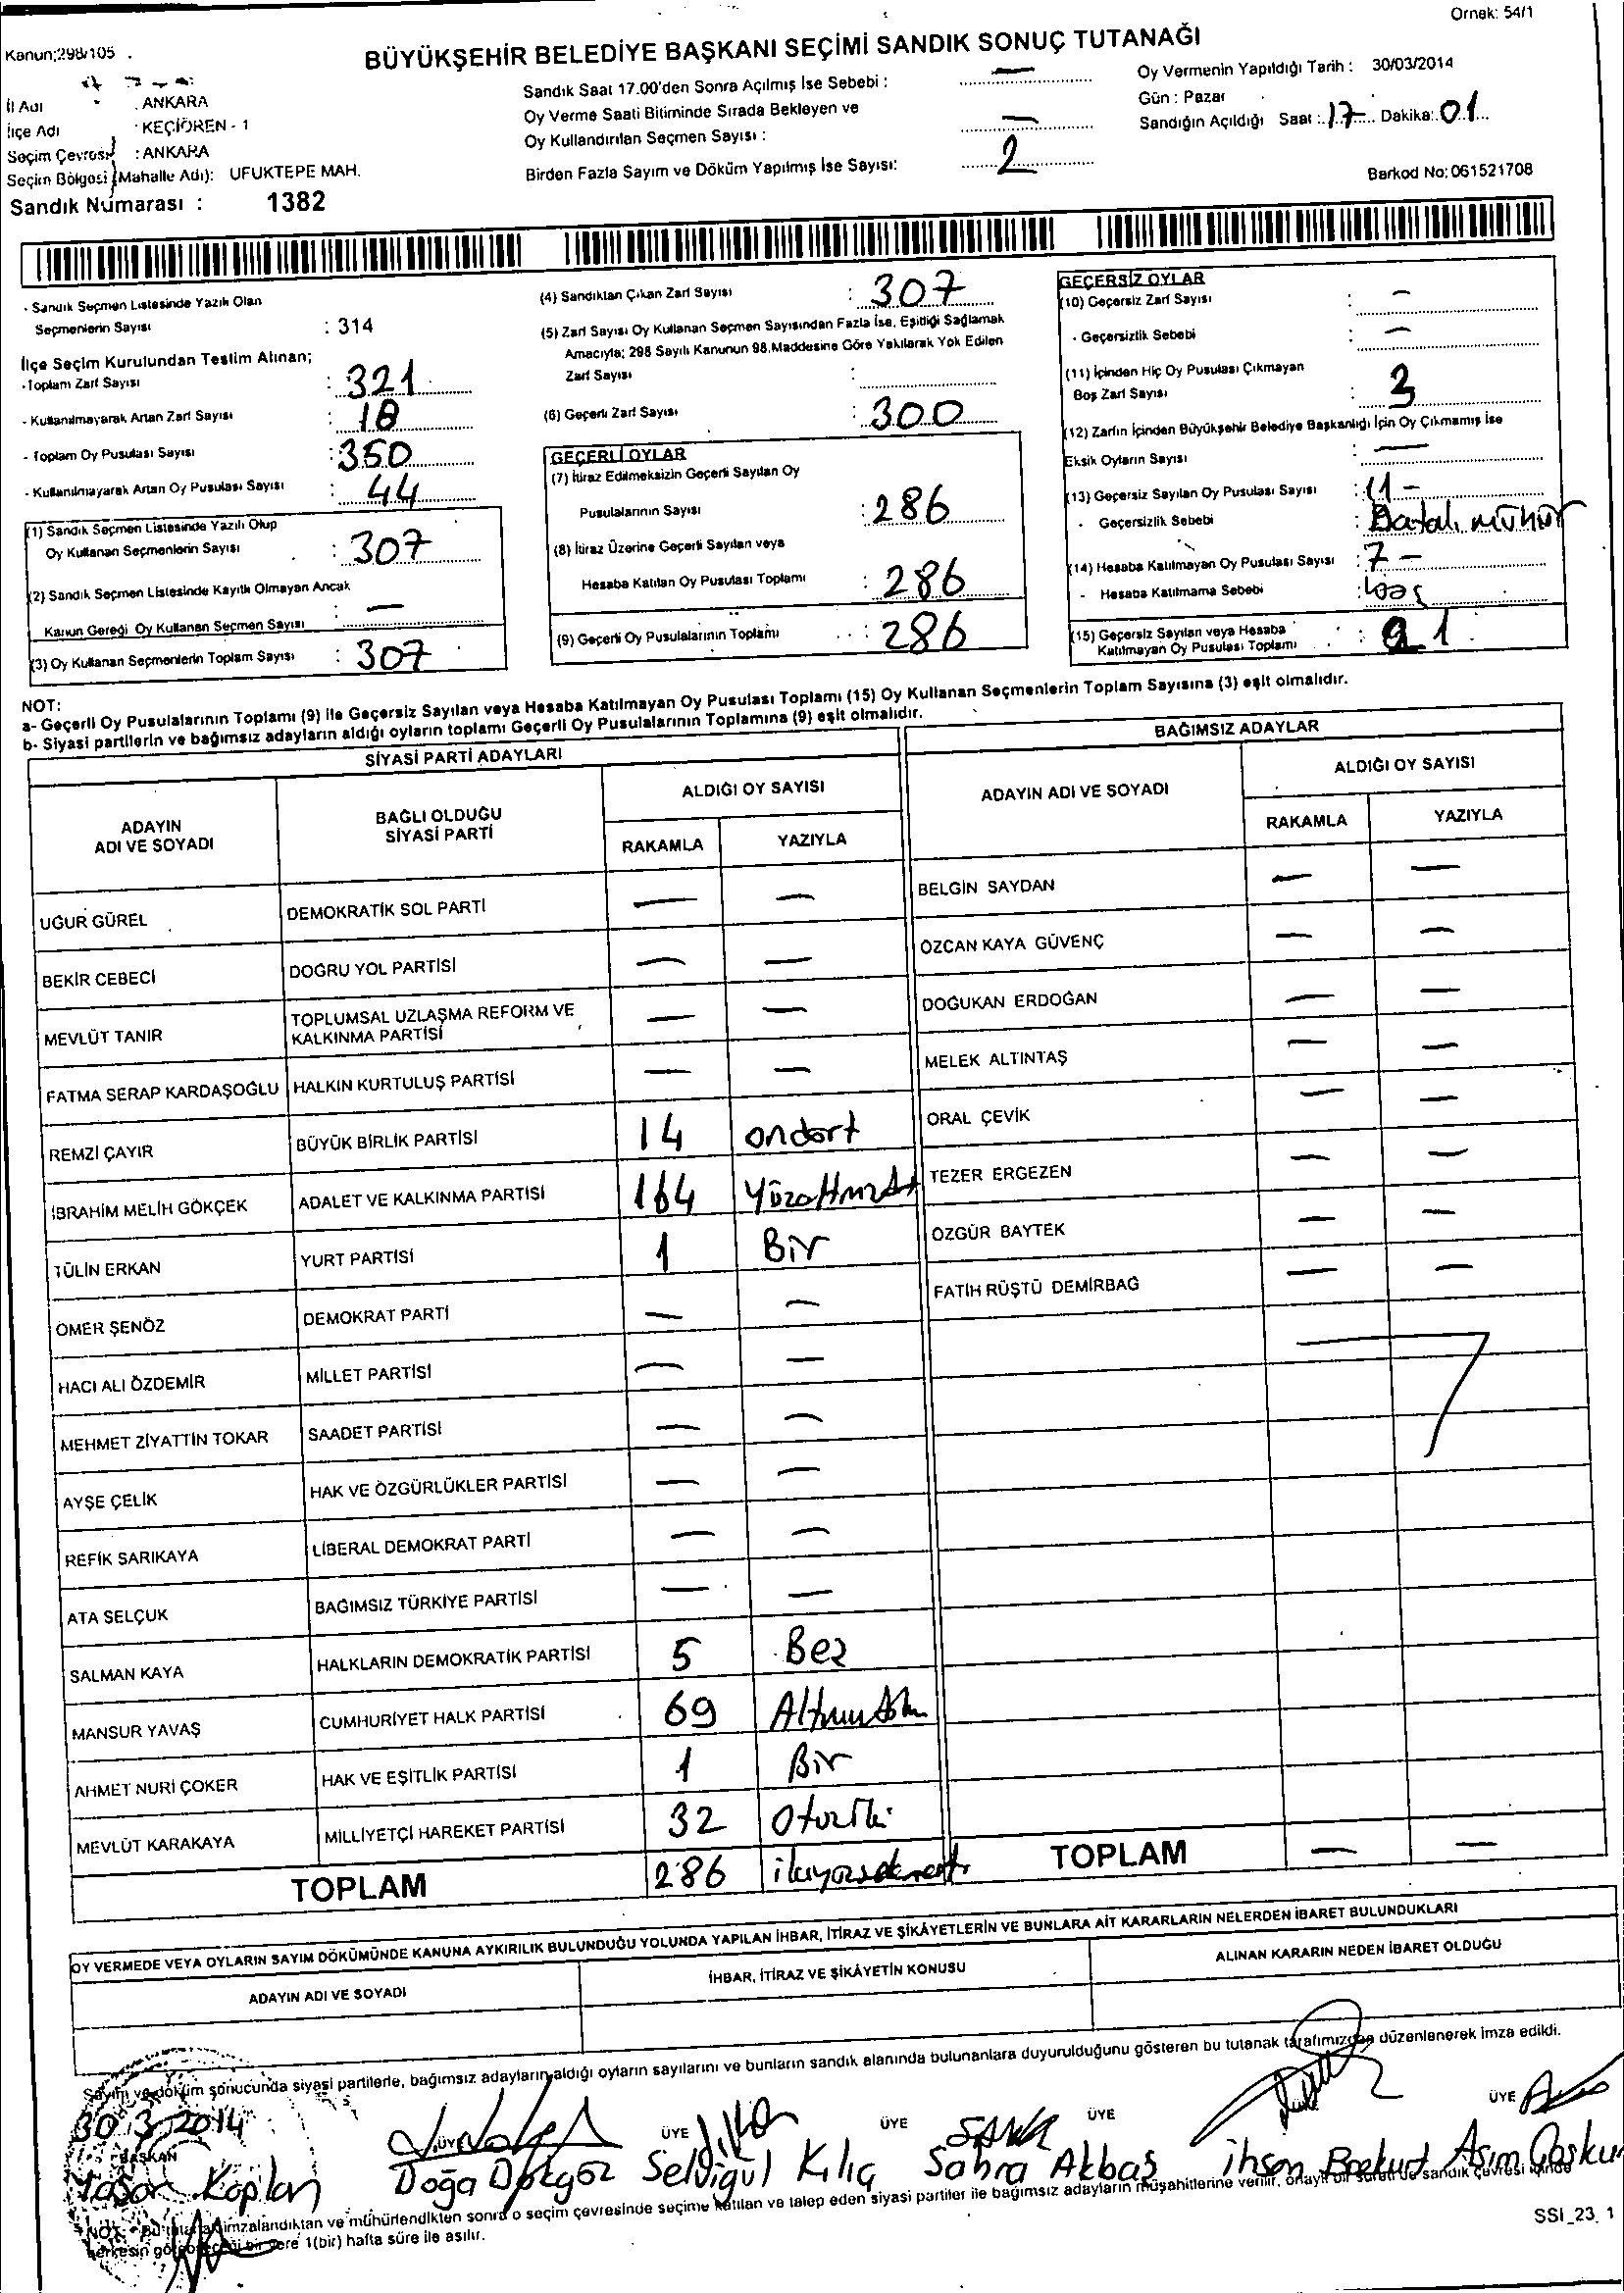 Ornek: 54/1
Kanun:298/105
BÜYÜKŞEHİR BELEDİYE BAŞKANI SEÇİMİ SANDIK SONUÇ TUTANAĞI
İl Adı : ANKARA
İlçe Adı : KEÇİÖREN - 1
Seçim Çevresi : ANKARA
Seçim Bölgesi (Mahalle Adı): UFUKTEPE MAH.
Sandık Numarası : 1382
Sandık Saat 17.00'den Sonra Açılmış İse Sebebi : —
Oy Verme Saati Bitiminde Sırada Bekleyen ve
Oy Kullandırılan Seçmen Sayısı : —
Birden Fazla Sayım ve Döküm Yapılmış İse Sayısı: 2
Oy Vermenin Yapıldığı Tarih : 30/03/2014
Gün : Pazar
Sandığın Açıldığı Saat : 17 Dakika: 01
Barkod No: 061521708
- Sandık Seçmen Listesinde Yazılı Olan
Seçmenlerin Sayısı : 314
İlçe Seçim Kurulundan Teslim Alınan;
-Toplam Zarf Sayısı : 321
- Kullanılmayarak Artan Zarf Sayısı : 18
- Toplam Oy Pusulası Sayısı : 350
- Kullanılmayarak Artan Oy Pusulası Sayısı : 44
(1) Sandık Seçmen Listesinde Yazılı Olup
Oy Kullanan Seçmenlerin Sayısı : 307
(2) Sandık Seçmen Listesinde Kayıtlı Olmayan Ancak
Kanun Gereği Oy Kullanan Seçmen Sayısı : —
(3) Oy Kullanan Seçmenlerin Toplam Sayısı : 307
(4) Sandıktan Çıkan Zarf Sayısı : 307
(5) Zarf Sayısı Oy Kullanan Seçmen Sayısından Fazla İse, Eşitliği Sağlamak
Amacıyla; 298 Sayılı Kanunun 98.Maddesine Göre Yakılarak Yok Edilen
Zarf Sayısı :
(6) Geçerli Zarf Sayısı : 300
GEÇERLİ OYLAR
(7) İtiraz Edilmeksizin Geçerli Sayılan Oy
Pusulalarının Sayısı : 286
(8) İtiraz Üzerine Geçerli Sayılan veya
Hesaba Katılan Oy Pusulası Toplamı : 286
(9) Geçerli Oy Pusulalarının Toplamı : 286
GEÇERSİZ OYLAR
(10) Geçersiz Zarf Sayısı : —
- Geçersizlik Sebebi : —
(11) İçinden Hiç Oy Pusulası Çıkmayan
Boş Zarf Sayısı : 3
(12) Zarfın İçinden Büyükşehir Belediye Başkanlığı İçin Oy Çıkmamış İse
Eksik Oyların Sayısı : —
(13) Geçersiz Sayılan Oy Pusulası Sayısı : 11 -
- Geçersizlik Sebebi : mühür
(14) Hesaba Katılmayan Oy Pusulası Sayısı : 7 -
- Hesaba Katılmama Sebebi :
(15) Geçersiz Sayılan veya Hesaba
Katılmayan Oy Pusulası Toplamı : 21
NOT:
a- Geçerli Oy Pusulalarının Toplamı (9) ile Geçersiz Sayılan veya Hesaba Katılmayan Oy Pusulası Toplamı (15) Oy Kullanan Seçmenlerin Toplam Sayısına (3) eşit olmalıdır.
b- Siyasi partilerin ve bağımsız adayların aldığı oyların toplamı Geçerli Oy Pusulalarının Toplamına (9) eşit olmalıdır.
SİYASİ PARTİ ADAYLARI
ADAYIN ADI VE SOYADI BAĞLI OLDUĞU SİYASİ PARTİ ALDIĞI OY SAYISI RAKAMLA YAZIYLA
UĞUR GÜREL DEMOKRATİK SOL PARTİ — —
BEKİR CEBECİ DOĞRU YOL PARTİSİ — —
MEVLÜT TANIR TOPLUMSAL UZLAŞMA REFORM VE KALKINMA PARTİSİ — —
FATMA SERAP KARDAŞOĞLU HALKIN KURTULUŞ PARTİSİ — —
REMZİ ÇAYIR BÜYÜK BİRLİK PARTİSİ 14 ondört
İBRAHİM MELİH GÖKÇEK ADALET VE KALKINMA PARTİSİ 164
TÜLİN ERKAN YURT PARTİSİ 1 Bir
ÖMER ŞENÖZ DEMOKRAT PARTİ — —
HACI ALİ ÖZDEMİR MİLLET PARTİSİ — —
MEHMET ZİYATTİN TOKAR SAADET PARTİSİ — —
AYŞE ÇELİK HAK VE ÖZGÜRLÜKLER PARTİSİ — —
REFİK SARIKAYA LİBERAL DEMOKRAT PARTİ — —
ATA SELÇUK BAĞIMSIZ TÜRKİYE PARTİSİ — —
SALMAN KAYA HALKLARIN DEMOKRATİK PARTİSİ 5 Beş
MANSUR YAVAŞ CUMHURİYET HALK PARTİSİ 69
AHMET NURİ ÇOKER HAK VE EŞİTLİK PARTİSİ 1 Bir
MEVLÜT KARAKAYA MİLLİYETÇİ HAREKET PARTİSİ 32 Otuziki
TOPLAM 286
BAĞIMSIZ ADAYLAR
ADAYIN ADI VE SOYADI ALDIĞI OY SAYISI RAKAMLA YAZIYLA
BELGİN SAYDAN — —
ÖZCAN KAYA GÜVENÇ — —
DOĞUKAN ERDOĞAN — —
MELEK ALTINTAŞ — —
ORAL ÇEVİK — —
TEZER ERGEZEN — —
ÖZGÜR BAYTEK — —
FATİH RÜŞTÜ DEMİRBAĞ — —
TOPLAM — —
OY VERMEDE VEYA OYLARIN SAYIM DÖKÜMÜNDE KANUNA AYKIRILIK BULUNDUĞU YOLUNDA YAPILAN İHBAR, İTİRAZ VE ŞİKÂYETLERİN VE BUNLARA AİT KARARLARIN NELERDEN İBARET BULUNDUKLARI
ADAYIN ADI VE SOYADI İHBAR, İTİRAZ VE ŞİKÂYETİN KONUSU ALINAN KARARIN NEDEN İBARET OLDUĞU
Sayım ve döküm sonucunda siyasi partilerle, bağımsız adayların aldığı oyların sayılarını ve bunların sandık alanında bulunanlara duyurulduğunu gösteren bu tutanak tarafımızdan düzenlenerek imza edildi.
30.3.2014
BAŞKAN ÜYE ÜYE ÜYE ÜYE ÜYE
Yaşar Kaplan Doğa Selvigül Kılıç Sahra Akbaş İhsan Bozkurt Asım
NOT: Bu tutanak imzalandıktan ve mühürlendikten sonra o seçim çevresinde seçime katılan ve talep eden siyasi partiler ile bağımsız adayların müşahitlerine verilir, onaylı bir sureti de sandık çevresi içinde
herkesin görebileceği bir yere 1(bir) hafta süre ile asılır.
SSI_23_1